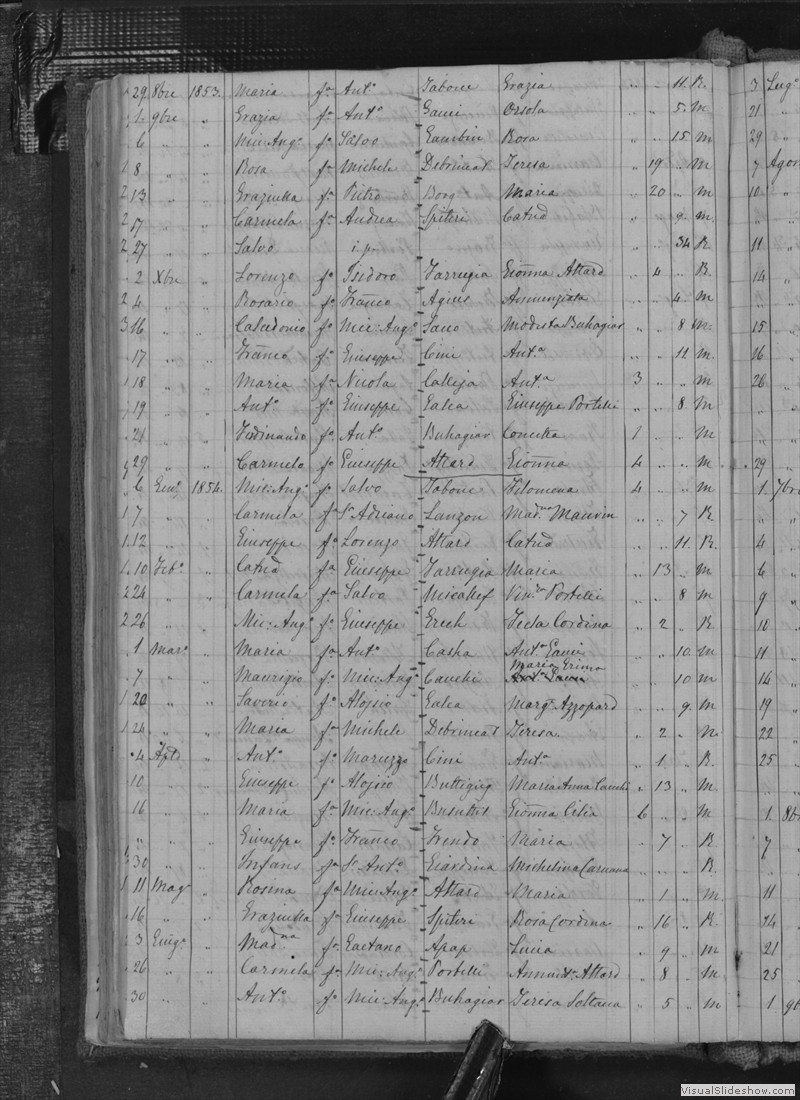 29 8bre 1853. Maria fa Anto Tabone Grazia " .. 11. R.
1. 9bre " Grazia fa Anto Gauci Orsola " .. 5. m
6 " " Mic: Ango fo Salvo Rosa " .. 15 m
8 " " Rosa fa Michele Debrincat Teresa " 19 .. m
13 " " Graziulla fa Pietro Borg Maria " 20 .. m
17 " " Carmela fa Andrea Spiteri Catnd " " 9 m.
27 " " Salvo i.p. " .. 34 R.
2 Xbre " Lorenzo fo Isidoro Farrugia Gionna Attard .. 4 .. R.
4 " " Rosario fo Franco Agius Annunziata " .. 4 .. m
16 " " Calcedonio fo Mic: Ango Sano Modesta Buhagiar .. 8 m.
17 " " Franco fo Giuseppe Cini Anta .. 11 m.
18 " " Maria fa Nicola Calleja Anta 3 .. .. m
19 " " Anto fo Giuseppe Galea Giuseppe Portelli .. .. 8. m
21 " " Ferdinando fo Anto Buhagiar Concetta 1 .. .. m
29 " " Carmelo fo Giuseppe Attard Gionna 4 .. .. m.
6 Geno 1854. Mic: Ango fo Salvo Tabone Filomena 4 .. .. m
7 " " Carmela fa Sr Adriano Lanzon Madna Maurin .. .. 7 R
12 " " Giuseppe fo Lorenzo Attard Catnd " .. 11. R.
10 Febo " Catna fa Giuseppe Farrugia Maria " 13 .. m
24 " " Carmela fa Salvo Micallef Vinza Portelli " .. 8 m
26 " " Mic: Ango fo Giuseppe Grech Tecla Cordina .. 2 .. R
1 Maro " Maria fa Anto Casha Anta Gauci .. .. 10 m
7 " " Maurizio fo Mic: Ango Cauchi Maria Grima .. 10 m
20 " " Saverio fo Alojsio Galea Marga Azzopard .. .. 9. m
24 " " Maria fa Michele Debrincat Teresa " 2 .. m
4 Aple " Anto fo Maruzzo Cini Anta " 1 .. R.
10 " " Giuseppe fo Alojsio Buttigieg Maria Anna Cauchi " 13 .. m.
16 " " Maria fa Mic: Ango Busuttil Gionna Cilia 6 .. .. m
" " " Giuseppe fo Franco Frendo Maria " 7 .. R
30 " " Infans fa Sr Anto Giardina Michelina Caruana .. .. R.
11 Mago " Rosina fa Mic: Ango Attard Maria .. 1 .. m
16 " " Graziulla fa Giuseppe Spiteri Rosa Cordina " 16 .. R
3 Giugo " Madna fa Gaetano Apap Lucia " 9 .. m
26 " " Carmela fa Mic: Ango Portelli Annunta Attard " 8 .. m
30 " " Anto fo Mic: Ango Buhagiar Teresa Soltana " 5 .. m
3 Lugo
21 "
29 "
7 Agos
10 "
" "
11 "
14 "
" "
15 "
16 "
26 "
29 "
1. 7bre
4 "
6 "
9 "
10 "
11 "
14 "
19 "
22 "
25 "
1. 8b
7 "
11 "
14 "
21 "
25 "
1. 9b
VisualSlideshow.com